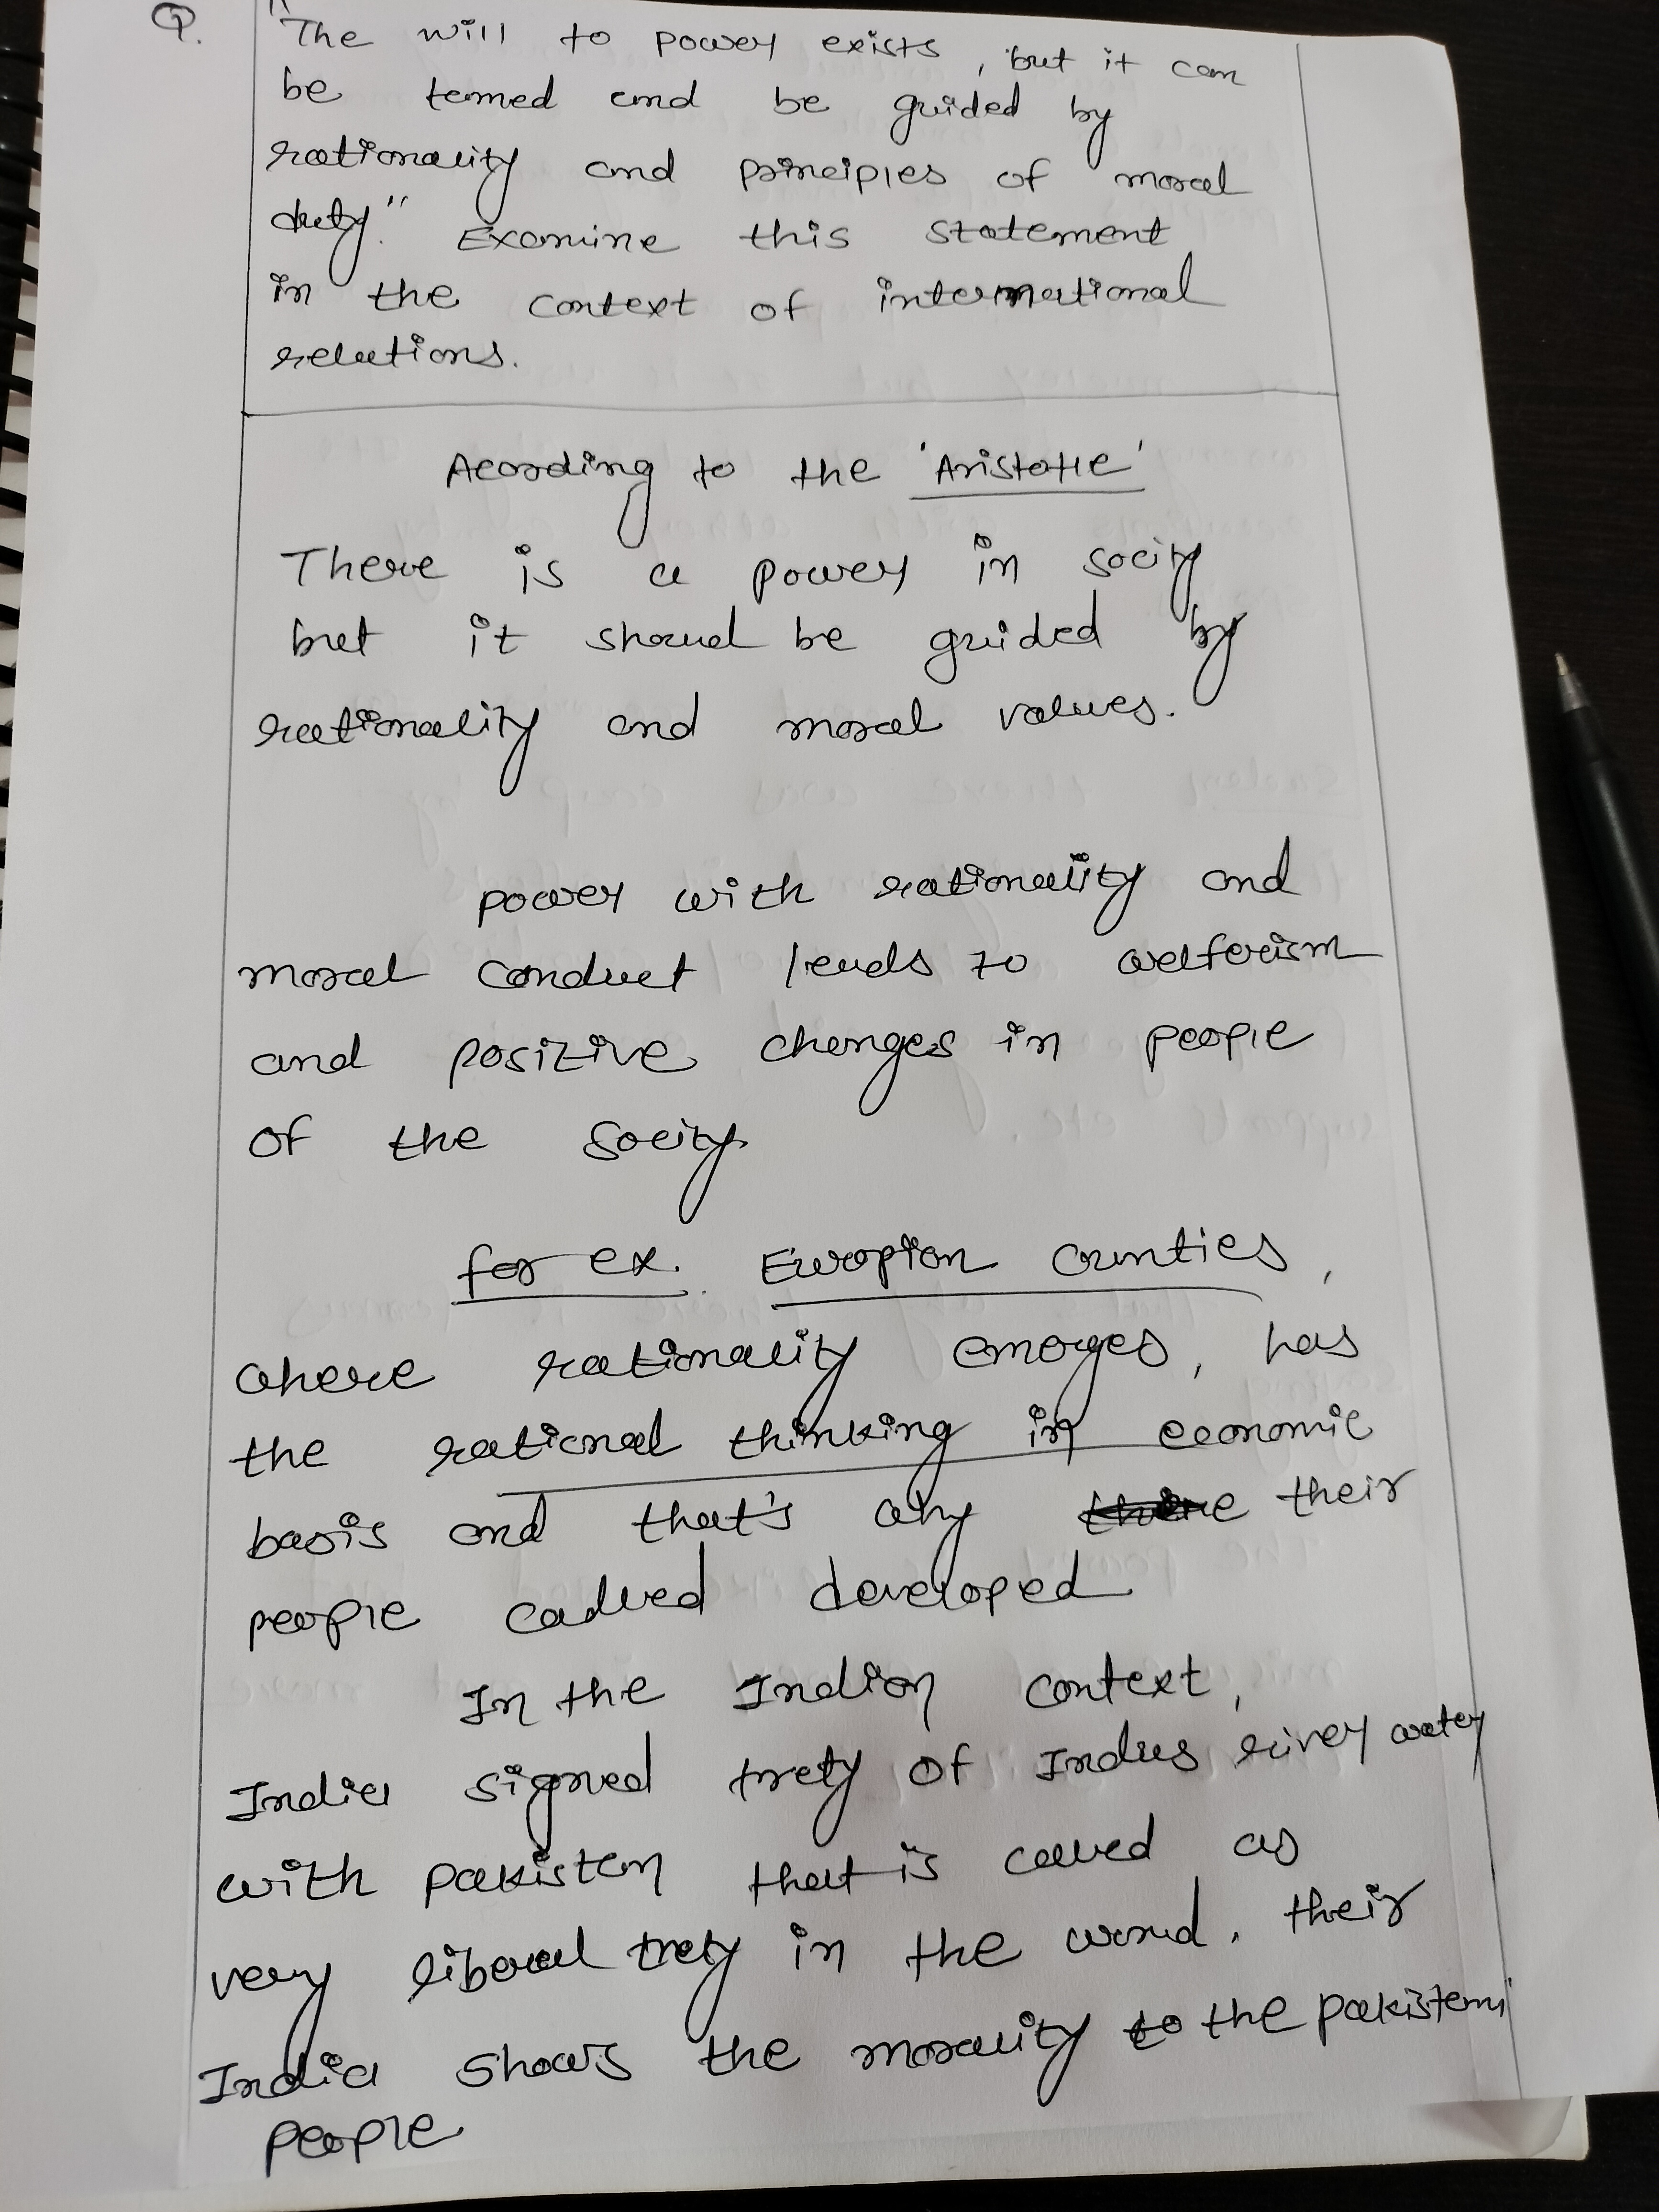 Q. "The will to power exists, but it can
be tamed and be guided by
rationality and principles of moral
duty." Examine this statement
in the context of international
relations.
Acording to the 'Aristotle'
There is a power in socity
but it should be guided by
rationality and moral values.
power with rationality and
moral conduct leads to welfarism
and positive changes in people
of the socity.
for ex. Europian counties,
where rationality emerges, has
the rational thinking in economic
basis and that's why their
people called developed
In the Indian context,
India signed trety of Indus river water
with pakistan that is called as
very liberal trety in the world. their
India shows the morality to the pakistani
people